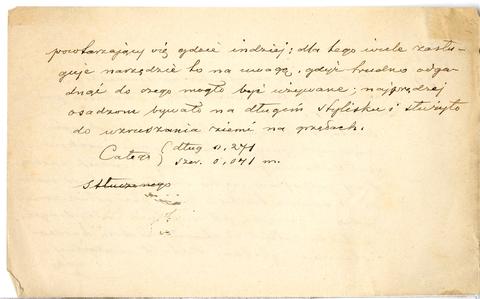 powtarzający się gdzie indziej; dla tego wiele zasłu-
guje narzędzie to na uwagę, gdyż trudno odga-
dnąć do czego mogło być używane; najprędzej
osadzone bywało na długim stylisku i służyło
do wzruszania ziemi na grzędach.
Całego { dług 0,271
szer. 0,041 m.
stłuczonego